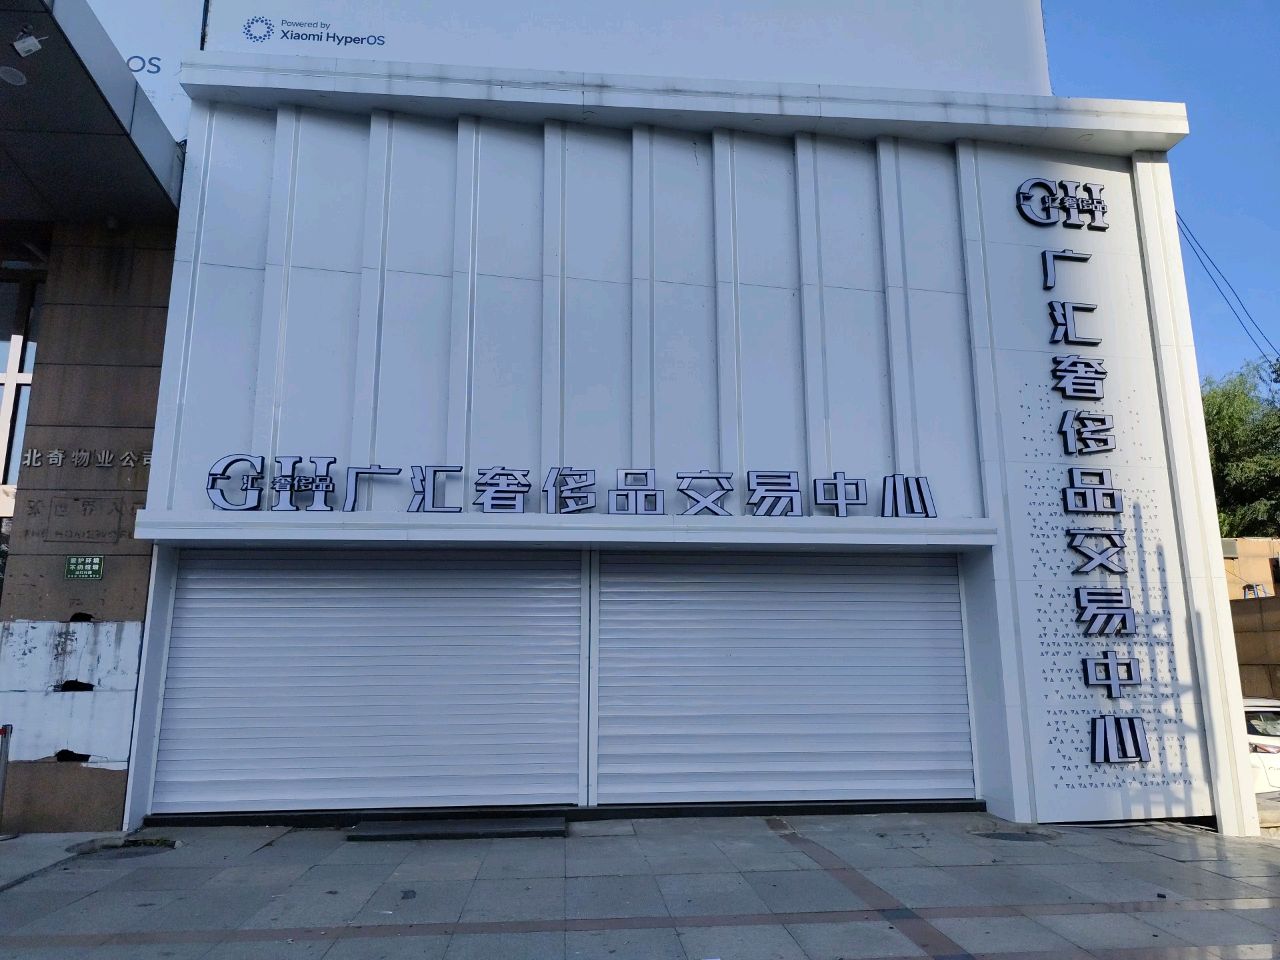 Powered by
Xiaomi HyperOS
OS
GH
广汇奢侈品
广汇奢侈品交易中心
GH 广汇奢侈品
广汇奢侈品交易中心
北奇物业公司
爱护环境